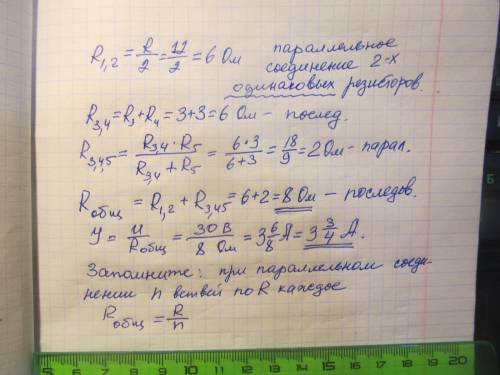 R₁,₂ = R/2 = 12/2 = 6 Ом параллельное
соединение 2-х
одинаковых резисторов.
R₃,₄ = R₃ + R₄ = 3+3 = 6 Ом – послед.
R₃,₄,₅ = R₃,₄ · R₅ / R₃,₄ + R₅ = 6·3 / 6+3 = 18/9 = 2 Ом – парал.
Rобщ = R₁,₂ + R₃,₄₅ = 6+2 = 8 Ом – последов.
У = U/Rобщ = 30 В / 8 Ом = 3 6/8 А = 3 3/4 А.
Запомните: при параллельном соеди-
нении n ветвей по R каждое
Rобщ = R/n
5 6 7 8 9 10 11 12 13 14 15 16 17 18 19 20